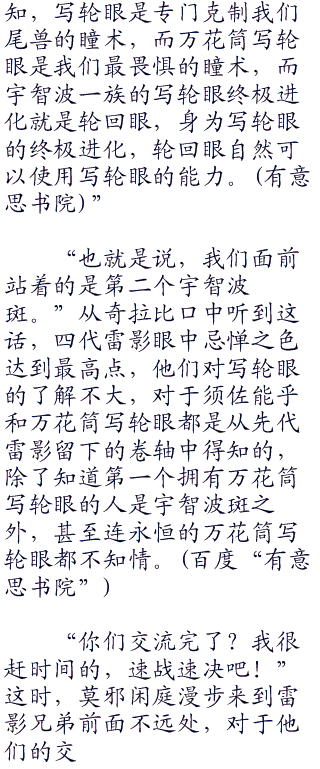 知，写轮眼是专门克制我们
尾兽的瞳术，而万花筒写轮
眼是我们最畏惧的瞳术，而
宇智波一族的写轮眼终极进
化就是轮回眼，身为写轮眼
的终极进化，轮回眼自然可
以使用写轮眼的能力。(有意
思书院)”
“也就是说，我们面前
站着的是第二个宇智波
斑。”从奇拉比口中听到这
话，四代雷影眼中忌惮之色
达到最高点，他们对写轮眼
的了解不大，对于须佐能乎
和万花筒写轮眼都是从先代
雷影留下的卷轴中得知的，
除了知道第一个拥有万花筒
写轮眼的人是宇智波斑之
外，甚至连永恒的万花筒写
轮眼都不知情。(百度“有意
思书院”)
“你们交流完了？我很
赶时间的，速战速决吧！”
这时，莫邪闲庭漫步来到雷
影兄弟前面不远处，对于他
们的交